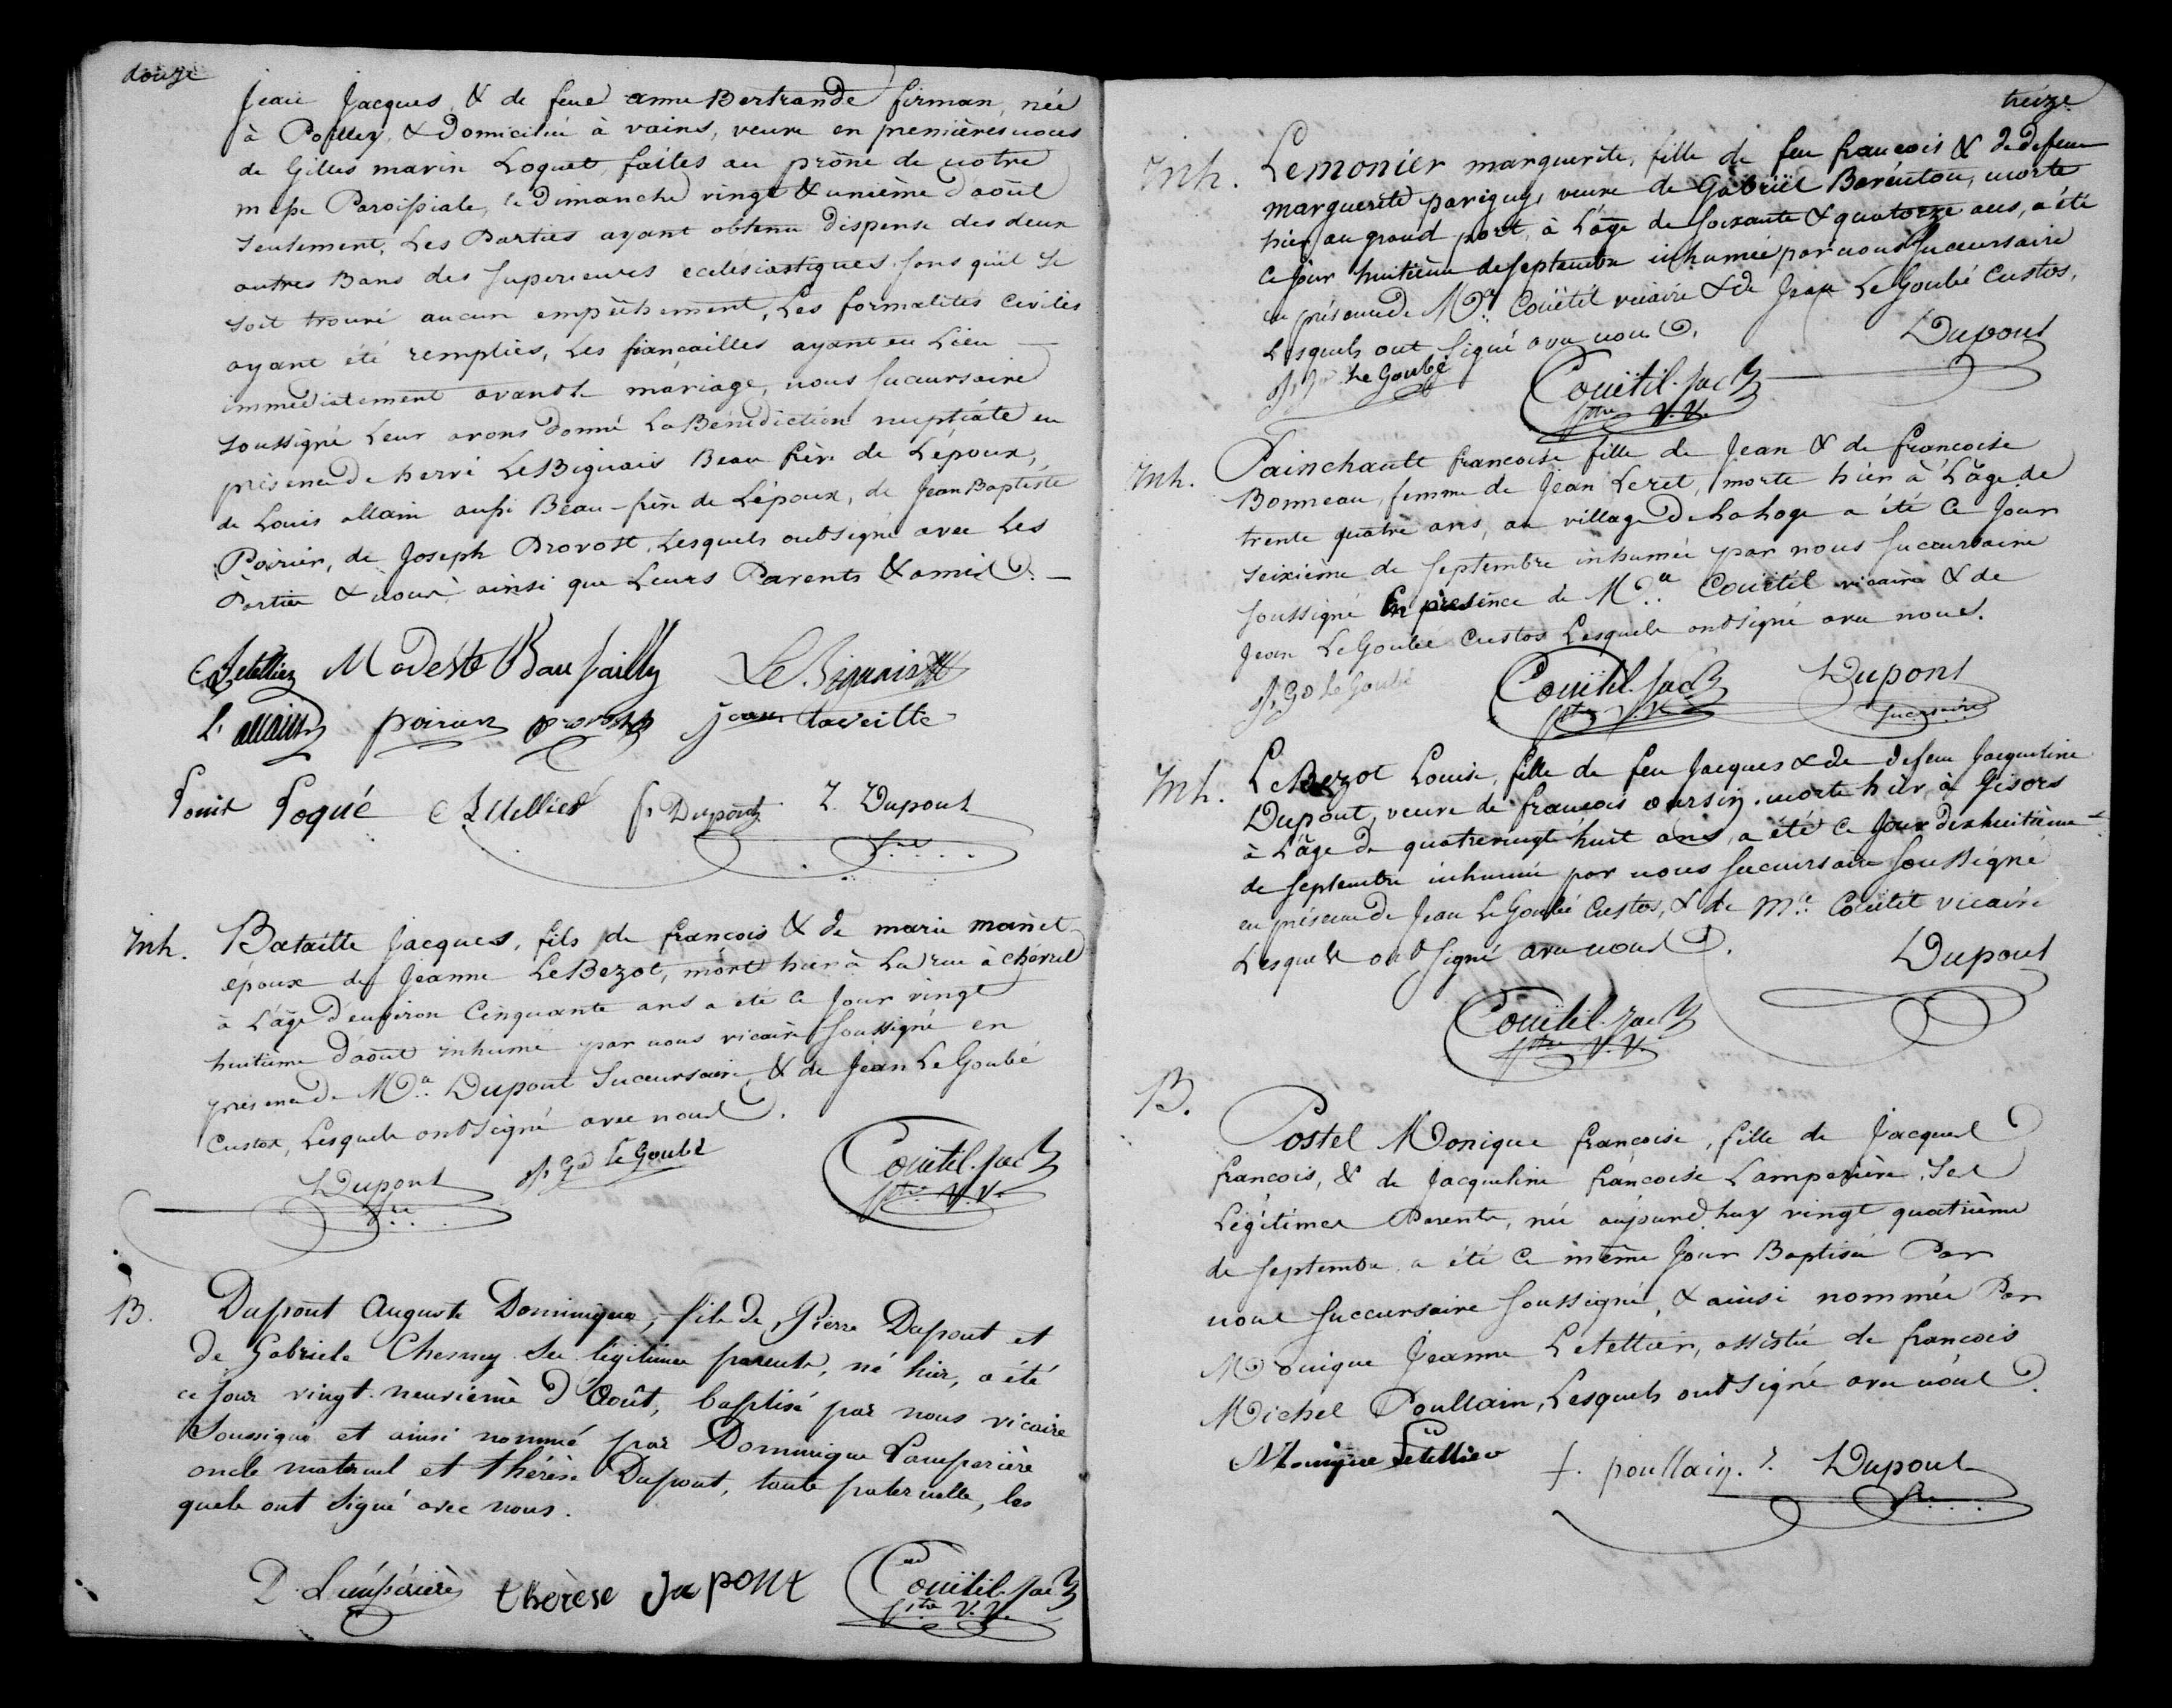 douze
Jean Jacques & de feue anne Bertrande firman, née
à Poilley & Domiciliée à vains, veuve en premières noces
de Gilles marin Loquet, faites au prône de notre
messe Paroissiale, le Dimanche vingt & unième d'août
seulement, Les Parties ayant obtenu Dispense des deux
autres Bans des superieures eclésiastiques sans qu'il se
soit trouvé aucun empêchement, Les formalités civiles
ayant été remplies, Les fiancailles ayant eu Lieu —
immédiatement avant le mariage, nous succursaire
soussigné Leur avons donné La Bénédiction nuptiale en
présence de hervé LeBignais Beau frère de L'époux,
de Louis allain aussi Beau-frère de L'époux, de Jean Baptiste
Poirier, de Joseph Provost, Lesquels ont signé avec Les
Parties & nous ainsi que Leurs Parents & amis. —
Letellier Modeste Beau LeBignais
L. allain poirier provost jean
Loqué Letellier f. Dupont Dupont
Inh. Bataille Jacques, fils de francois & de marie
époux de Jeanne LeBezot, mort hier à La rue à cheval
à L'âge d'environ Cinquante ans a été ce Jour vingt
huitième d'août inhumé par nous vicaire soussigné en
présence de M. Dupont Succursaire, & de Jean LeGoubé
Custos, Lesquels ont signé avec nous.
Dupont Le Goubé Couëtil
B. Dupont Auguste Dominique, fils de Pierre Dupont et
de Gabriele Chesnay ses légitimes parents, né hier, a été
ce jour vingt-neuvième d'Août, baptisé par nous vicaire
Soussigné et ainsi nommé par Dominique Lamperière
oncle maternel et thérèse Dupont, tante paternelle, les
quels ont signé avec nous.
D. Lempérière thérèse dupont Couëtil
treize
Inh. Lemonier marguerite, fille de feu francois & de defeue
marguerite parigny, veuve de Gabriel Barenton, morte
hier au grand port, à L'âge de soixante & quatorze ans, a été
ce jour huitième de septembre inhumée par nous succursaire
en présence de M. Couëtil vicaire & de Jean LeGoubé Custos,
Lesquels ont signé avec nous.
Le Goubé Couëtil Dupont
Inh. Painchault francoise fille de Jean & de francoise
Bonneau, femme de Jean Leret, morte hier à L'âge de
trente quatre ans, au village de La hoge a été ce Jour
seixième de septembre inhumée par nous succursaire
soussigné En présence de M. Couëtil vicaire & de
Jean LeGoubé Custos Lesquels ont signé avec nous.
Le Goubé Couëtil Dupont
succursaire
Inh. LeBezot Louise, fille de feu Jacques & de defeue Jacqueline
Dupont, veuve de francois oursin, morte hier à Gisors
à L'âge de quatrevingt huit ans, a été ce Jour dixhuitième
de septembre inhumée par nous succursaire soussigné
en présence de Jean LeGoubé Custos, & de M. Couëtil vicaire
Lesquels ont signé avec nous.
Couëtil Dupont
B.
Postel Monique francoise, fille de Jacques
francois, & de Jacqueline francoise Lamperière, ses
Légitimes Parents, née aujourd'huy vingt quatrième
de septembre a été ce même Jour Baptisée Par
nous succursaire soussigné, & ainsi nommée Par
Monique Jeanne Letellier, assistée de francois
Michel Poullain, Lesquels ont signé avec nous.
Monique Letellier f. poullain. Dupont